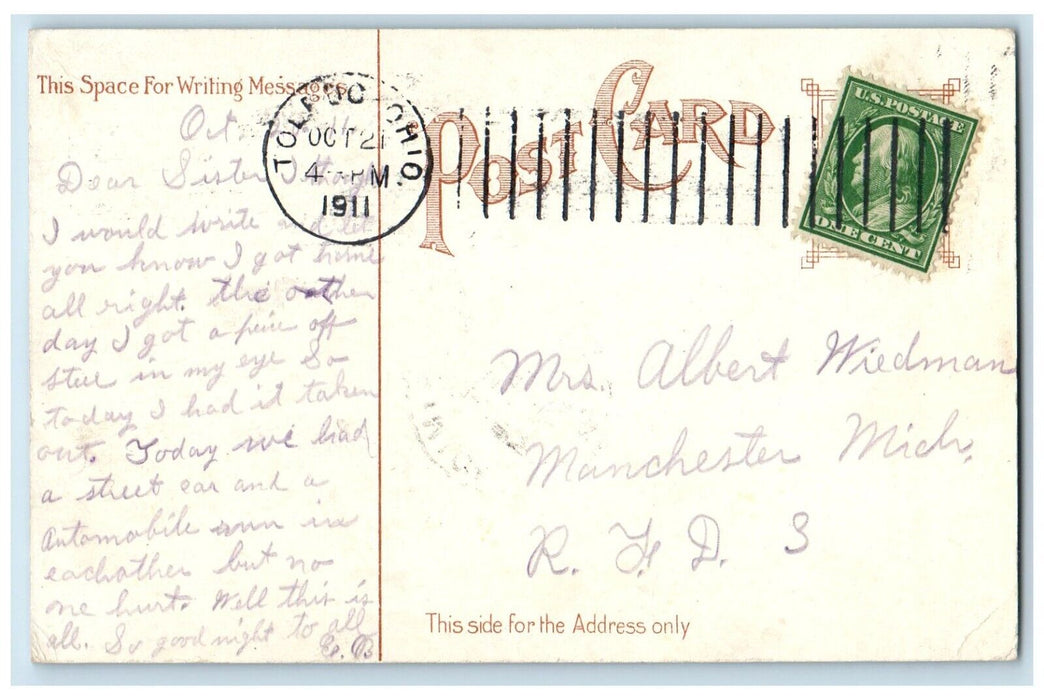 This Space For Writing Messages
Oct
Dear Sister I
I would write and let
you know I got home
all right. the outher
day I got a peice off
steel in my eye So
today I had it taken
out. Today we had
a street car and a
Automobile run in
eachother but no
one hurt. Well this is
all. So good night to all
E. B
TOLEDO, OHIO.
OCT 21
4 PM
1911
POST CARD
U.S. POSTAGE
ONE CENT
Mrs. Albert Wiedman
Manchester Mich.
R. F. D. 3
This side for the Address only